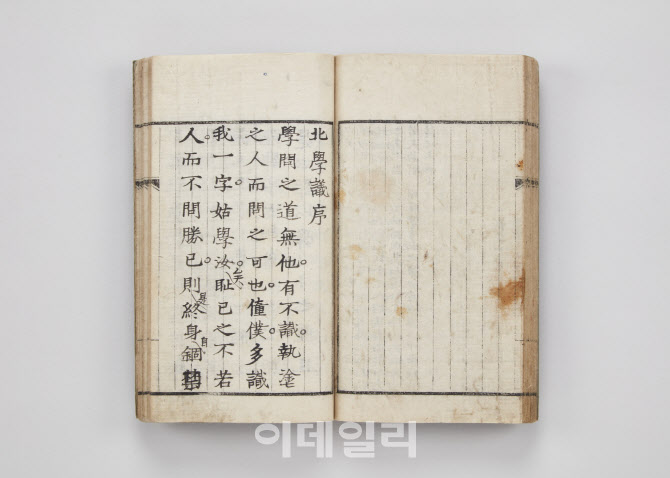 北學議序
學問之道無他有不識執塗
之人而問之可也僮僕多識
我一字姑學汝恥己之不若
人而不問勝己則是終身自錮
이데일리